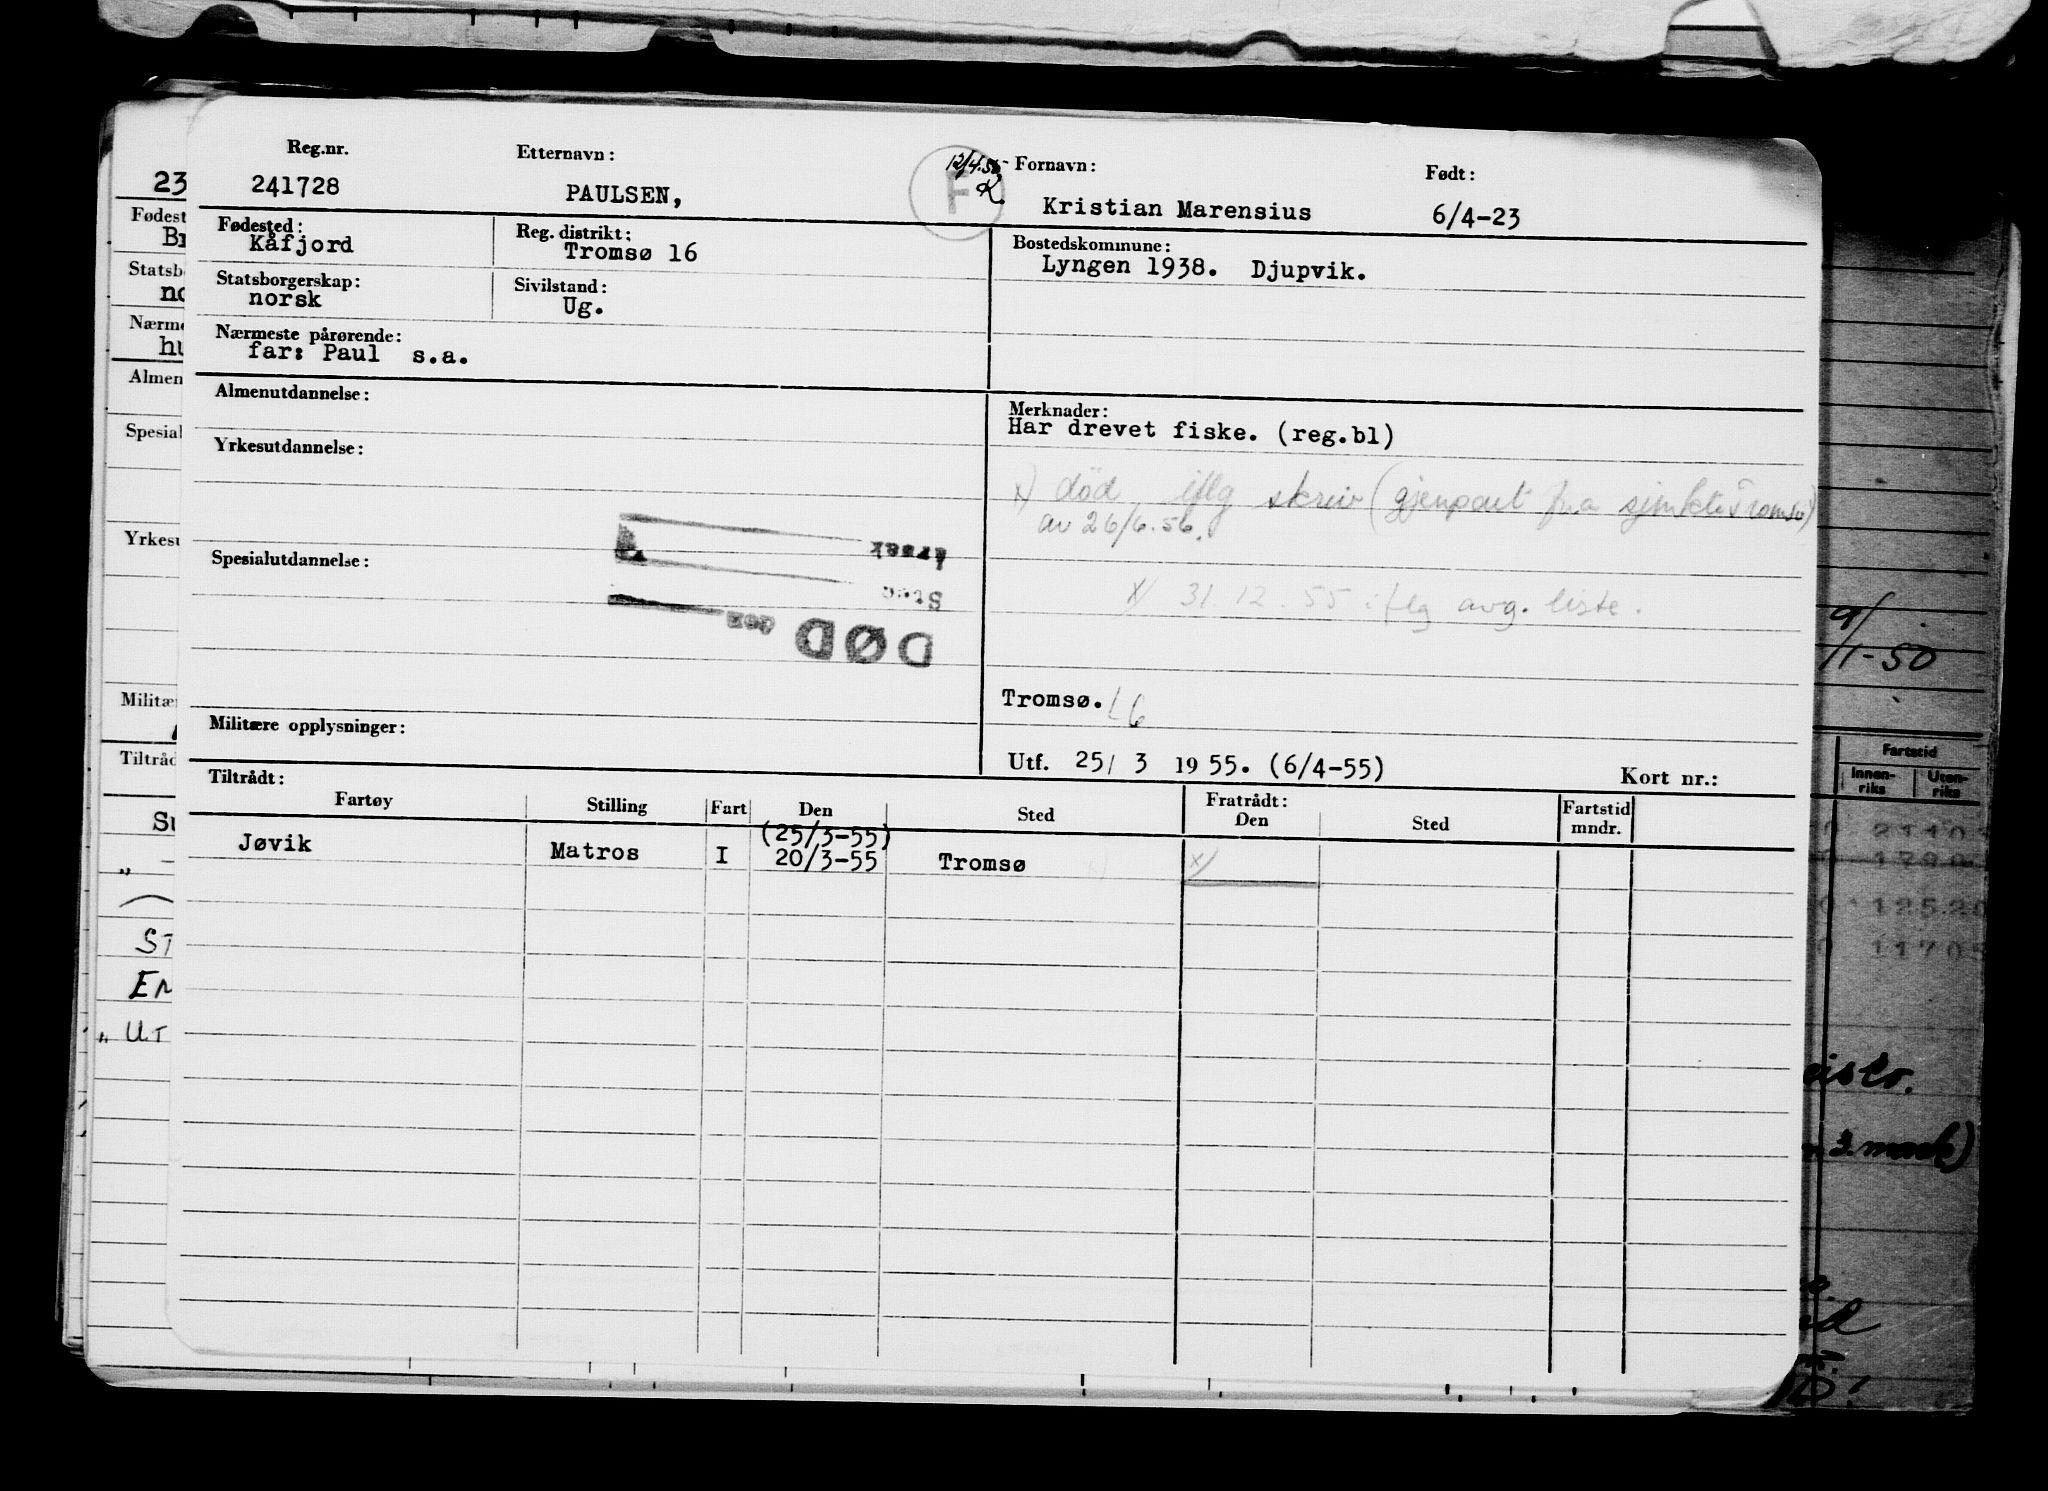 Reg.nr. Etternavn: 12/4.56 K. Fornavn: Født:
241728 PAULSEN, F Kristian Marensius 6/4-23
Fødested: Reg. distrikt: Bostedskommune:
Kåfjord Tromsø 16 Lyngen 1938. Djupvik.
Statsborgerskap: Sivilstand:
norsk Ug.
Nærmeste pårørende:
far: Paul s.a.
Almenutdannelse: Merknader:
Har drevet fiske. (reg.bl)
Yrkesutdannelse:
x) död iflg skriv (gjenpart fra sjmktr Tromsø)
av 26/6.56.
Årsak
Spesialutdannelse:
Sted
x) 31.12.55 iflg avg. liste.
DØD den
Tromsø. L6
Militære opplysninger:
Utf. 25/ 3 1955. (6/4-55) Kort nr.:
Tiltrådt: Fratrådt:
Fartøy Stilling Fart Den Sted Den Sted Fartstid mndr.
(25/3-55)
Jøvik Matros I 20/3-55 Tromsø x)
23
Fødest
Statsb
no
Nærme
hu
Almen
Spesial
Yrkesu
Militær
Tiltråd
Su
ST
EN
„ UT
9/
/1-50
Fartstid
Innen-riks Uten-riks